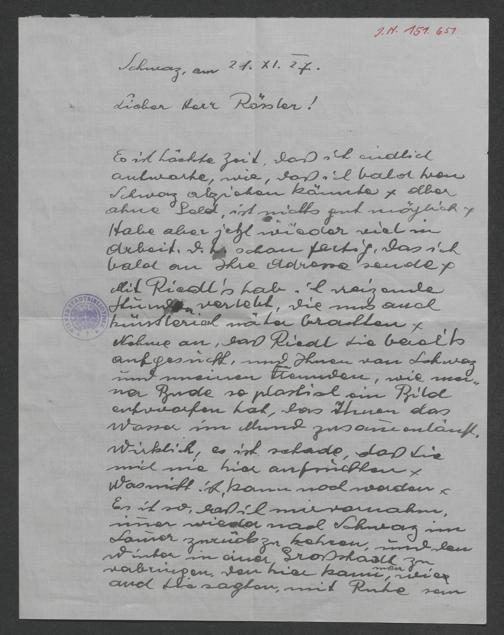 J.N. 151.651
Schwaz, am 21. XI. 27.
Lieber Herr Rössler!
Es ist höchte Zeit, daß ich endlich
antworte, wie, daß ich bald von
Schwaz abziehen könnte x aber
ohne Geld, ist nichts gut möglich x
Habe aber jetzt wieder viel in
Arbeit. schon fertig, das ich
bald an Ihre Adresse sende x
Mit Riedl's hab ich reizende
Stunden verlebt, die uns auch
künstlerich näher brachten x
Nehme an, daß Riedl Sie bereits
aufgesucht, und Ihnen von Schwaz
und meinen Freunden, wie mei-
ner Bude so plastisch ein Bild
entworfen hat, das Ihnen das
Wasser im Mund zusammenläuft.
Wirklich, es ist schade, daß Sie
mich nie hier aufsuchten x
Was nicht ist, kann noch werden x
Es ist so, daß ich mir vornahm,
immer wieder nach Schwaz im
Sommer zurück zu kehren, und den
Winter in einer Großstadt zu
verbringen, den hier kann man, wie
auch Sie sagten, mit Ruhe sein